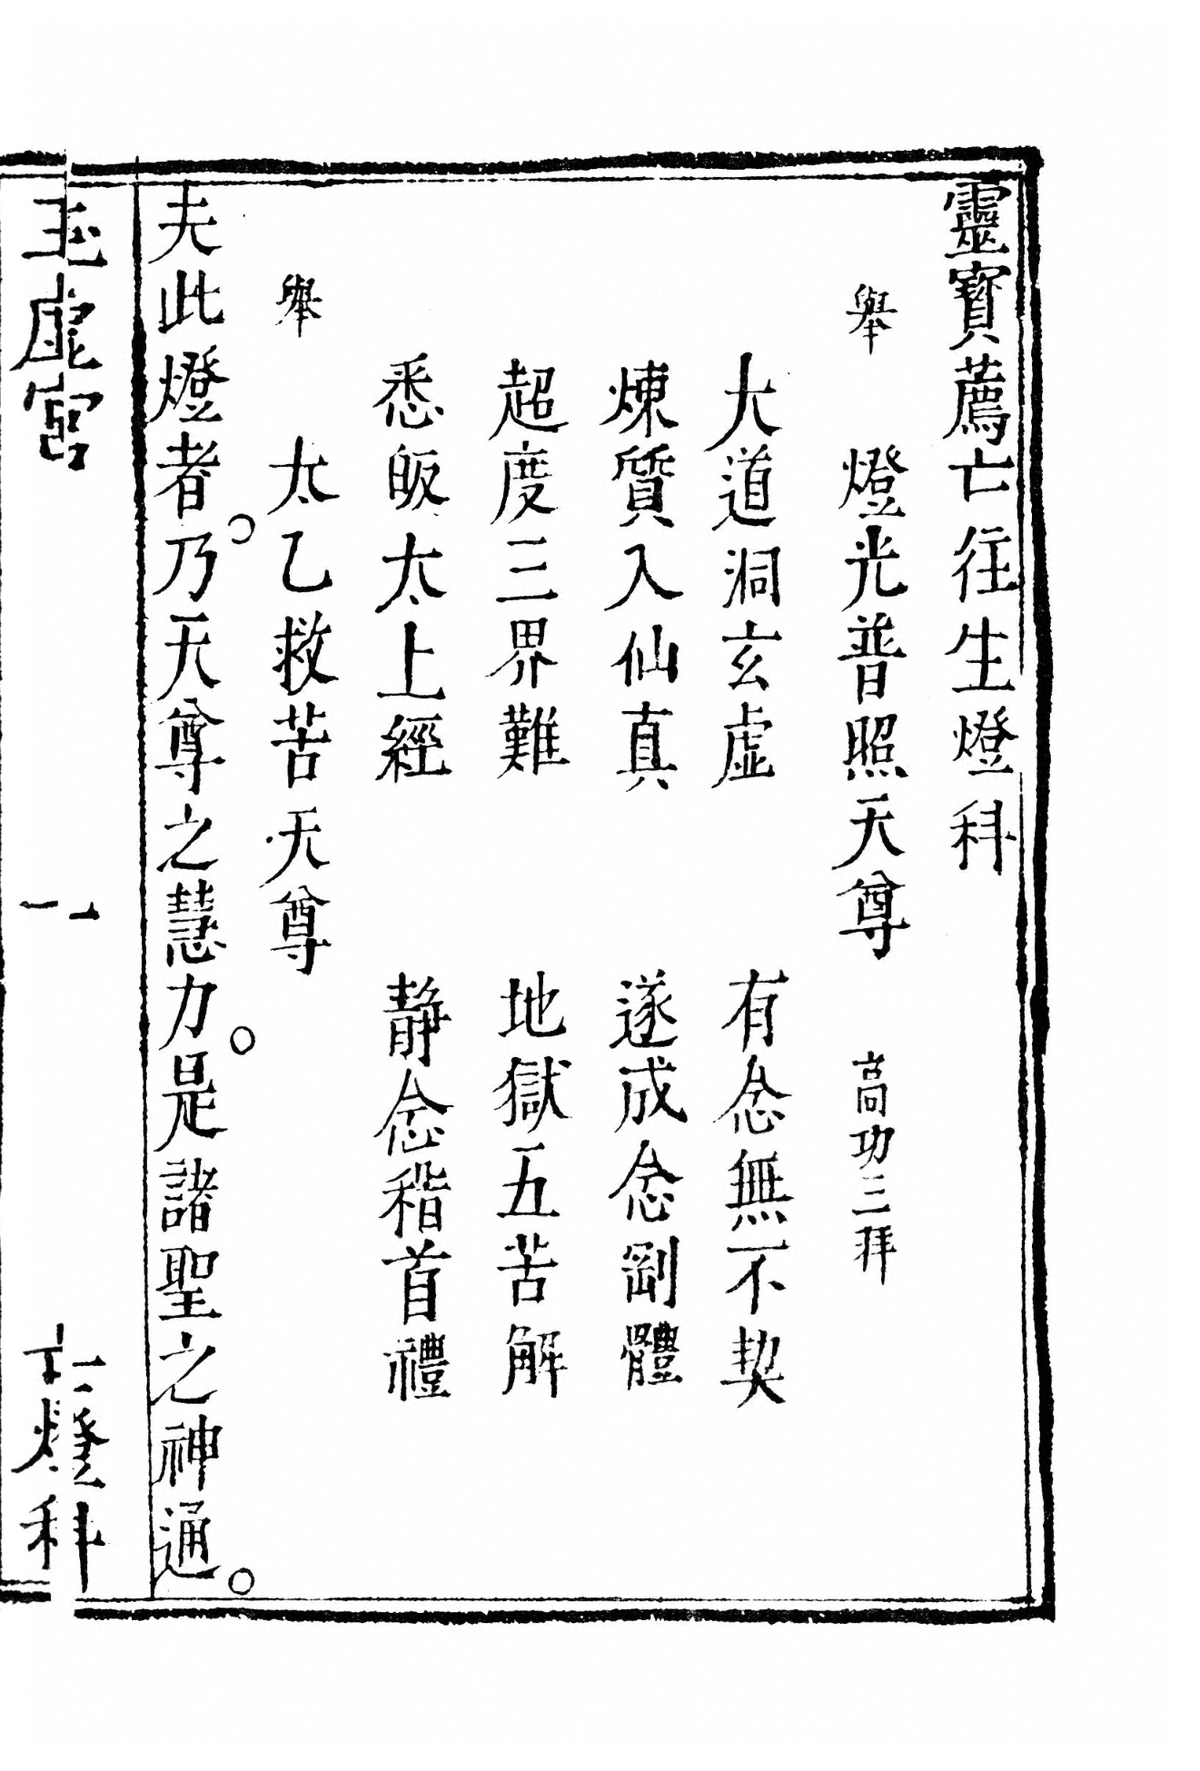 靈寶薦亡往生燈科
舉 燈光普照天尊 高功三拜
大道洞玄虛 有念無不契
煉質入仙真 遂成金剛體
超度三界難 地獄五苦解
悉皈太上經 静念稽首禮
舉 太乙救苦天尊
夫此燈者。乃天尊之慧力。是諸聖之神通。
玉虛宮 一 亡燈科